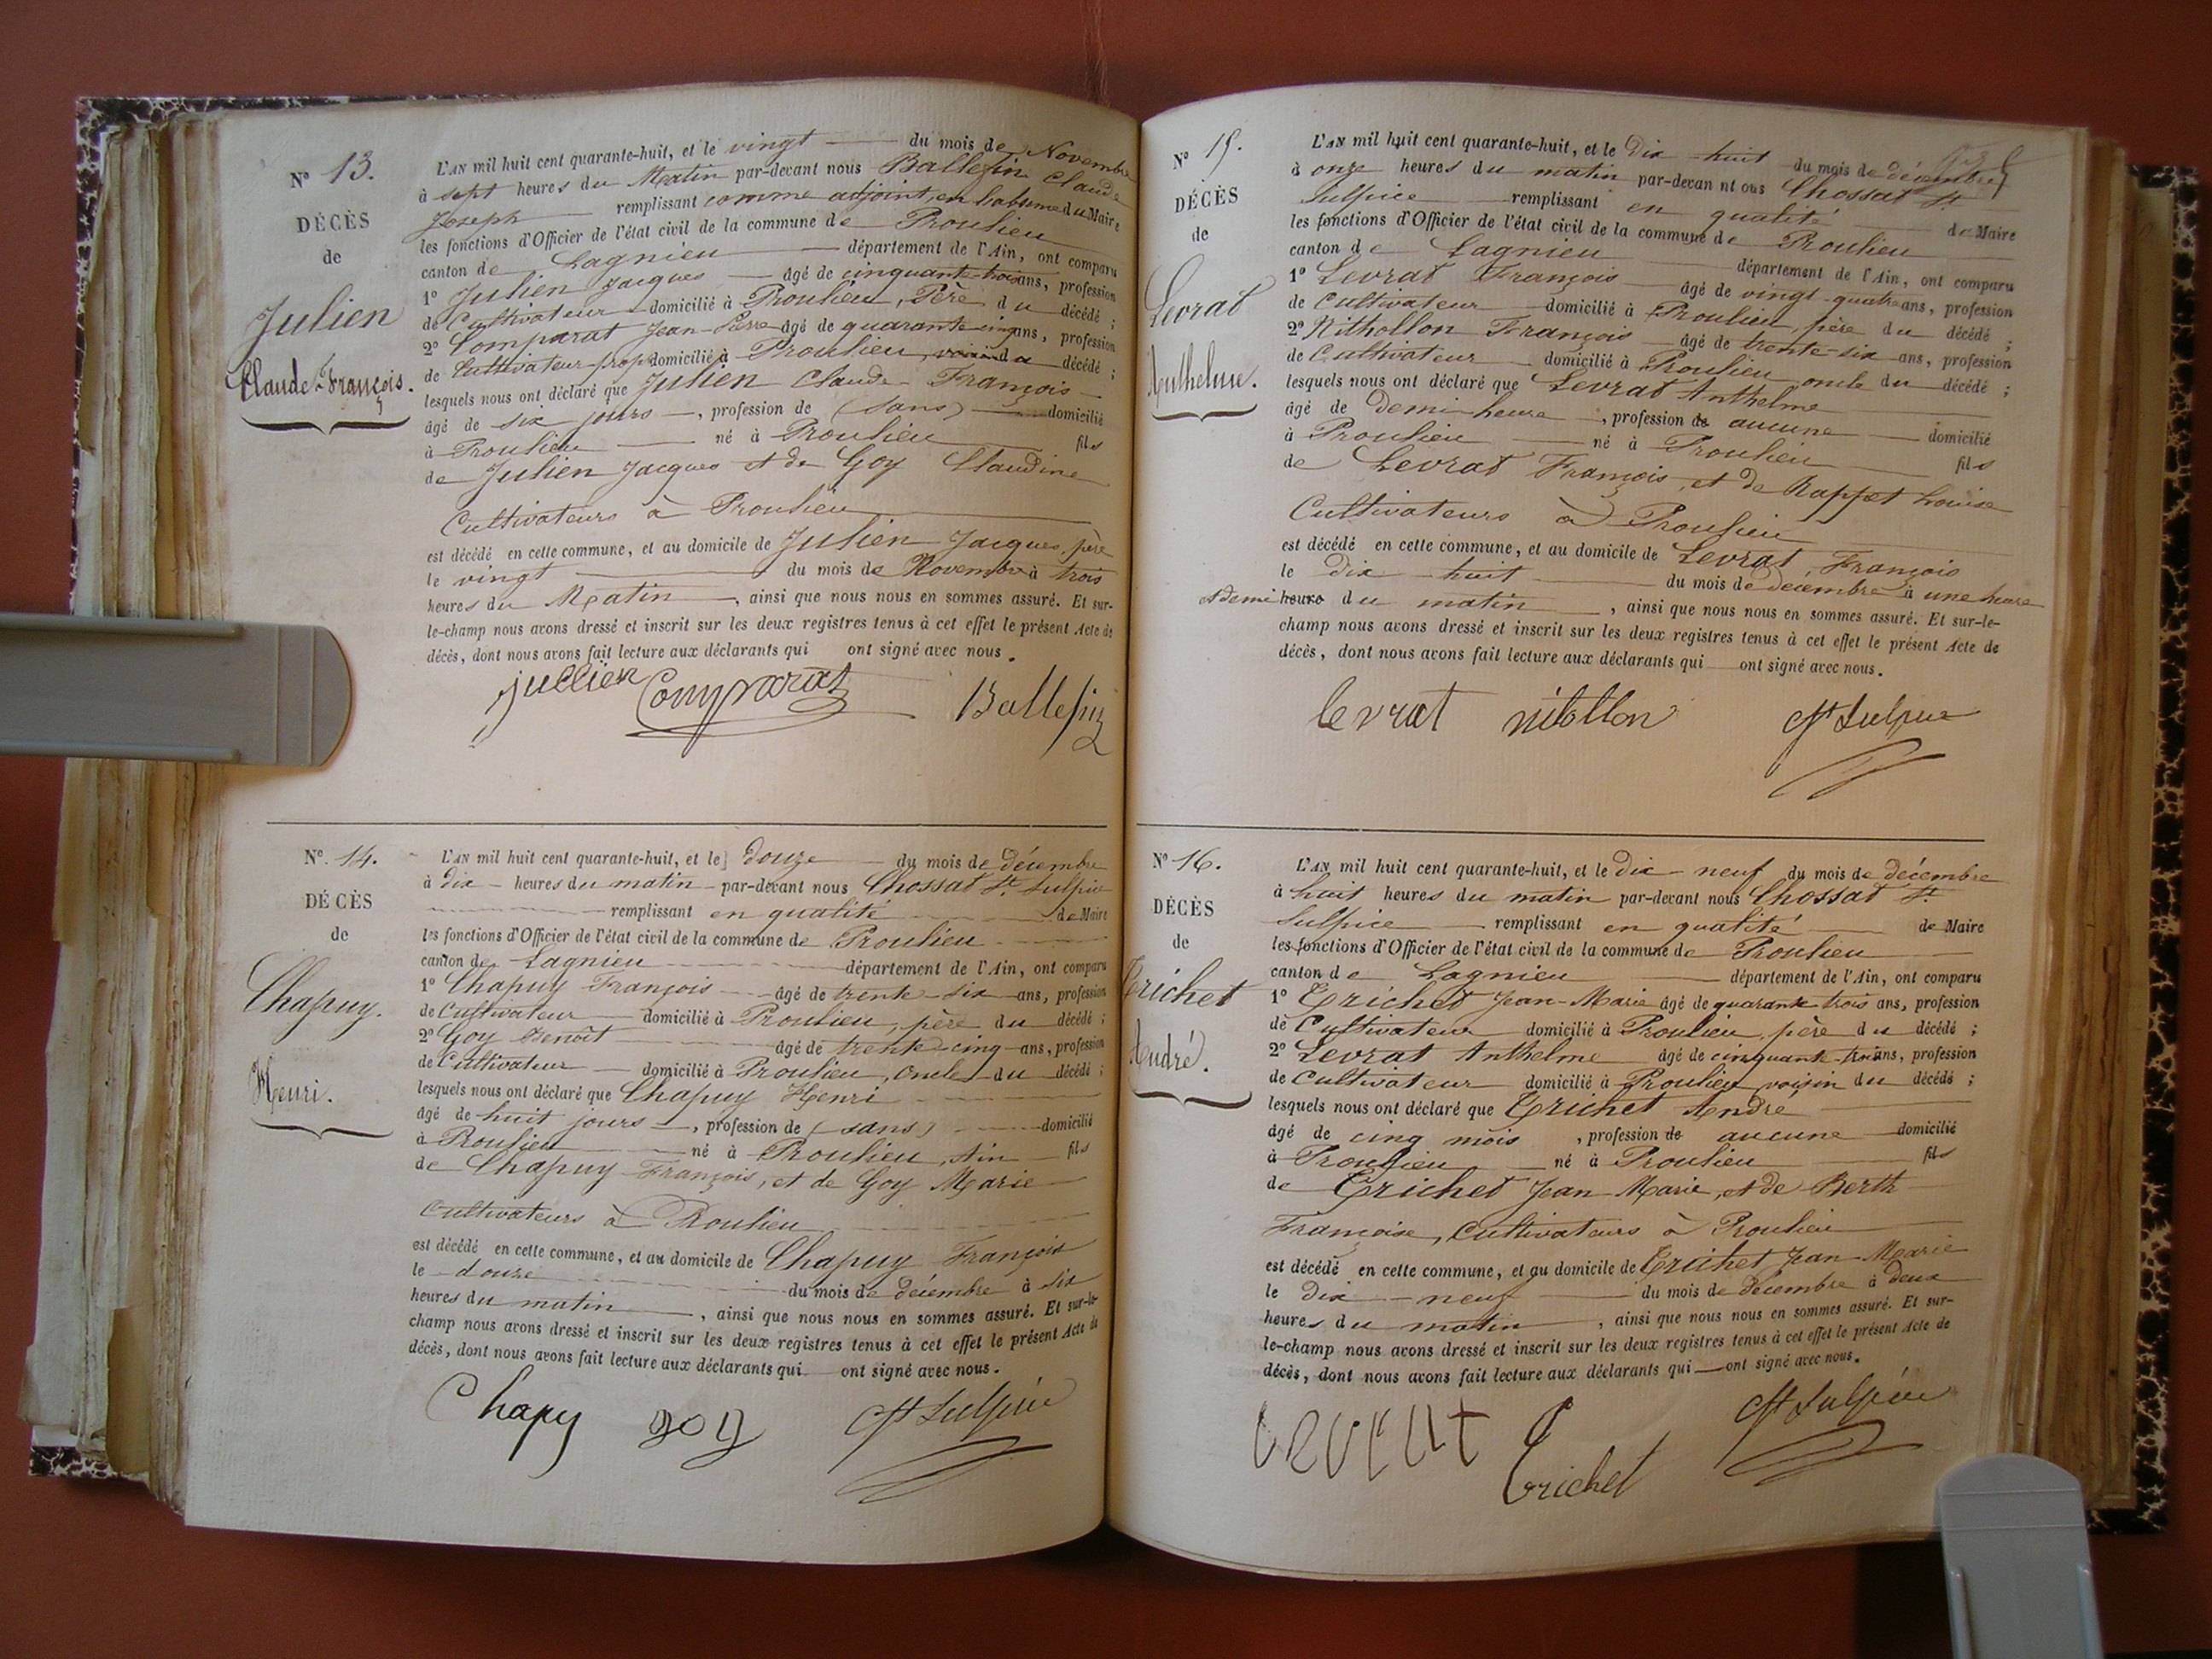 N° 13.
DÉCÈS
de
Julien
Claude-François.
L'AN mil huit cent quarante-huit, et le vingt du mois de Novembre
à sept heures du Matin par-devant nous Ballefin Claude
Joseph remplissant comme adjoint, en du Maire
les fonctions d'Officier de l'état civil de la commune de Proulieu
canton de Lagnieu département de l'Ain, ont comparu
1° Julien Jacques âgé de cinquante-trois ans, profession
de Cultivateur domicilié à Proulieu, Père du décédé ;
2° Comparat Jean-Pierre âgé de quarante-cinq ans, profession
de Cultivateur prop. domicilié à Proulieu, voisin du décédé ;
lesquels nous ont déclaré que Julien Claude-François
âgé de six jours, profession de (sans) domicilié
à Proulieu né à Proulieu fils
de Julien Jacques et de Goy Claudine
Cultivateurs à Proulieu
est décédé en cette commune, et au domicile de Julien Jacques, père
le vingt du mois de Novembre à trois
heures du Matin, ainsi que nous nous en sommes assuré. Et sur-
le-champ nous avons dressé et inscrit sur les deux registres tenus à cet effet le présent Acte de
décès, dont nous avons fait lecture aux déclarants qui ont signé avec nous.
jullien Comparat Ballefin
N° 14.
DÉCÈS
de
Chapuy.
Henri.
L'AN mil huit cent quarante-huit, et le douze du mois de décembre
à dix heures du matin par-devant nous Chossat St. Sulpice
remplissant en qualité de Maire
les fonctions d'Officier de l'état civil de la commune de Proulieu
canton de Lagnieu département de l'Ain, ont comparu
1° Chapuy François âgé de trente-six ans, profession
de Cultivateur domicilié à Proulieu, père du décédé ;
2° Goy Benoît âgé de trente-cinq ans, profession
de Cultivateur domicilié à Proulieu, Oncle du décédé ;
lesquels nous ont déclaré que Chapuy Henri
âgé de huit jours, profession de (sans) domicilié
à Proulieu né à Proulieu, Ain fils
de Chapuy François, et de Goy Marie
Cultivateurs à Proulieu
est décédé en cette commune, et au domicile de Chapuy François
le douze du mois de décembre à six
heures du matin, ainsi que nous nous en sommes assuré. Et sur-le-
champ nous avons dressé et inscrit sur les deux registres tenus à cet effet le présent Acte de
décès, dont nous avons fait lecture aux déclarants qui ont signé avec nous.
Chapy goy Ct St Sulpice
N° 15.
DÉCÈS
de
Levrat
Anthelme.
L'AN mil huit cent quarante-huit, et le dix-huit du mois de décembre
à onze heures du matin par-devan nt ous Chossat St.
Sulpice remplissant en qualité de Maire
les fonctions d'Officier de l'état civil de la commune de Proulieu
canton de Lagnieu département de l'Ain, ont comparu
1° Levrat François âgé de vingt-quatre ans, profession
de Cultivateur domicilié à Proulieu, père du décédé ;
2° Nithollon François âgé de trente-six ans, profession
de Cultivateur domicilié à Proulieu, oncle du décédé ;
lesquels nous ont déclaré que Levrat Anthelme
âgé de demi-heure, profession de aucune domicilié
à Proulieu né à Proulieu fils
de Levrat François, et de Rappet Louise
Cultivateurs à Proulieu
est décédé en cette commune, et au domicile de Levrat, François
le dix-huit du mois de décembre à une heure
et demi heure du matin, ainsi que nous nous en sommes assuré. Et sur-le-
champ nous avons dressé et inscrit sur les deux registres tenus à cet effet le présent Acte de
décès, dont nous avons fait lecture aux déclarants qui ont signé avec nous.
levrat nitollon Ct St Sulpice
N° 16.
DÉCÈS
de
Trichet
André.
L'AN mil huit cent quarante-huit, et le dix-neuf du mois de décembre
à huit heures du matin par-devant nous Chossat St.
Sulpice remplissant en qualité de Maire
les fonctions d'Officier de l'état civil de la commune de Proulieu
canton de Lagnieu département de l'Ain, ont comparu
1° Trichet Jean-Marie âgé de quarante-trois ans, profession
de Cultivateur domicilié à Proulieu, père du décédé ;
2° Levrat Anthelme âgé de cinquante-trois ans, profession
de Cultivateur domicilié à Proulieu, voisin du décédé ;
lesquels nous ont déclaré que Trichet André
âgé de cinq mois, profession de aucune domicilié
à Proulieu né à Proulieu fils
de Trichet Jean-Marie, et de Berth
Françoise, Cultivateurs à Proulieu
est décédé en cette commune, et au domicile de Trichet Jean-Marie
le dix-neuf du mois de décembre à deux
heures du matin, ainsi que nous nous en sommes assuré. Et sur-
le-champ nous avons dressé et inscrit sur les deux registres tenus à cet effet le présent Acte de
décès, dont nous avons fait lecture aux déclarants qui ont signé avec nous.
levrat Trichet Ct St Sulpice